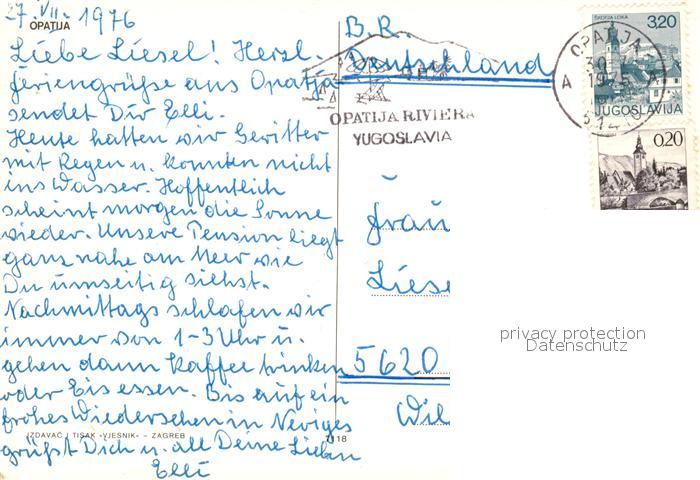 27. VII. 1976
OPATIJA
Liebe Liesel! Herzl.
Feriengrüße aus Opatija
sendet Dir Elli.
Heute hatten wir Gewitter
mit Regen u. konnten nicht
ins Wasser. Hoffentlich
scheint morgen die Sonne
wieder. Unsere Pension liegt
ganz nahe am Meer wie
Du umseitig siehst.
Nachmittags schlafen wir
immer von 1-3 Uhr u.
gehen dann Kaffee trinken
oder Eis essen. Bis auf ein
frohes Wiedersehen in Neviges
grüßt Dich u. all Deine Lieben
Elli
IZDAVAČ I TISAK »VJESNIK« – ZAGREB
7118
B.R.
Deutschland
OPATIJA RIVIERA
YUGOSLAVIA
OPATIJA
A A
ŠKOFJA LOKA
3.20
JUGOSLAVIJA
0,20
Frau
Liese
5620
Wil
privacy protection
Datenschutz